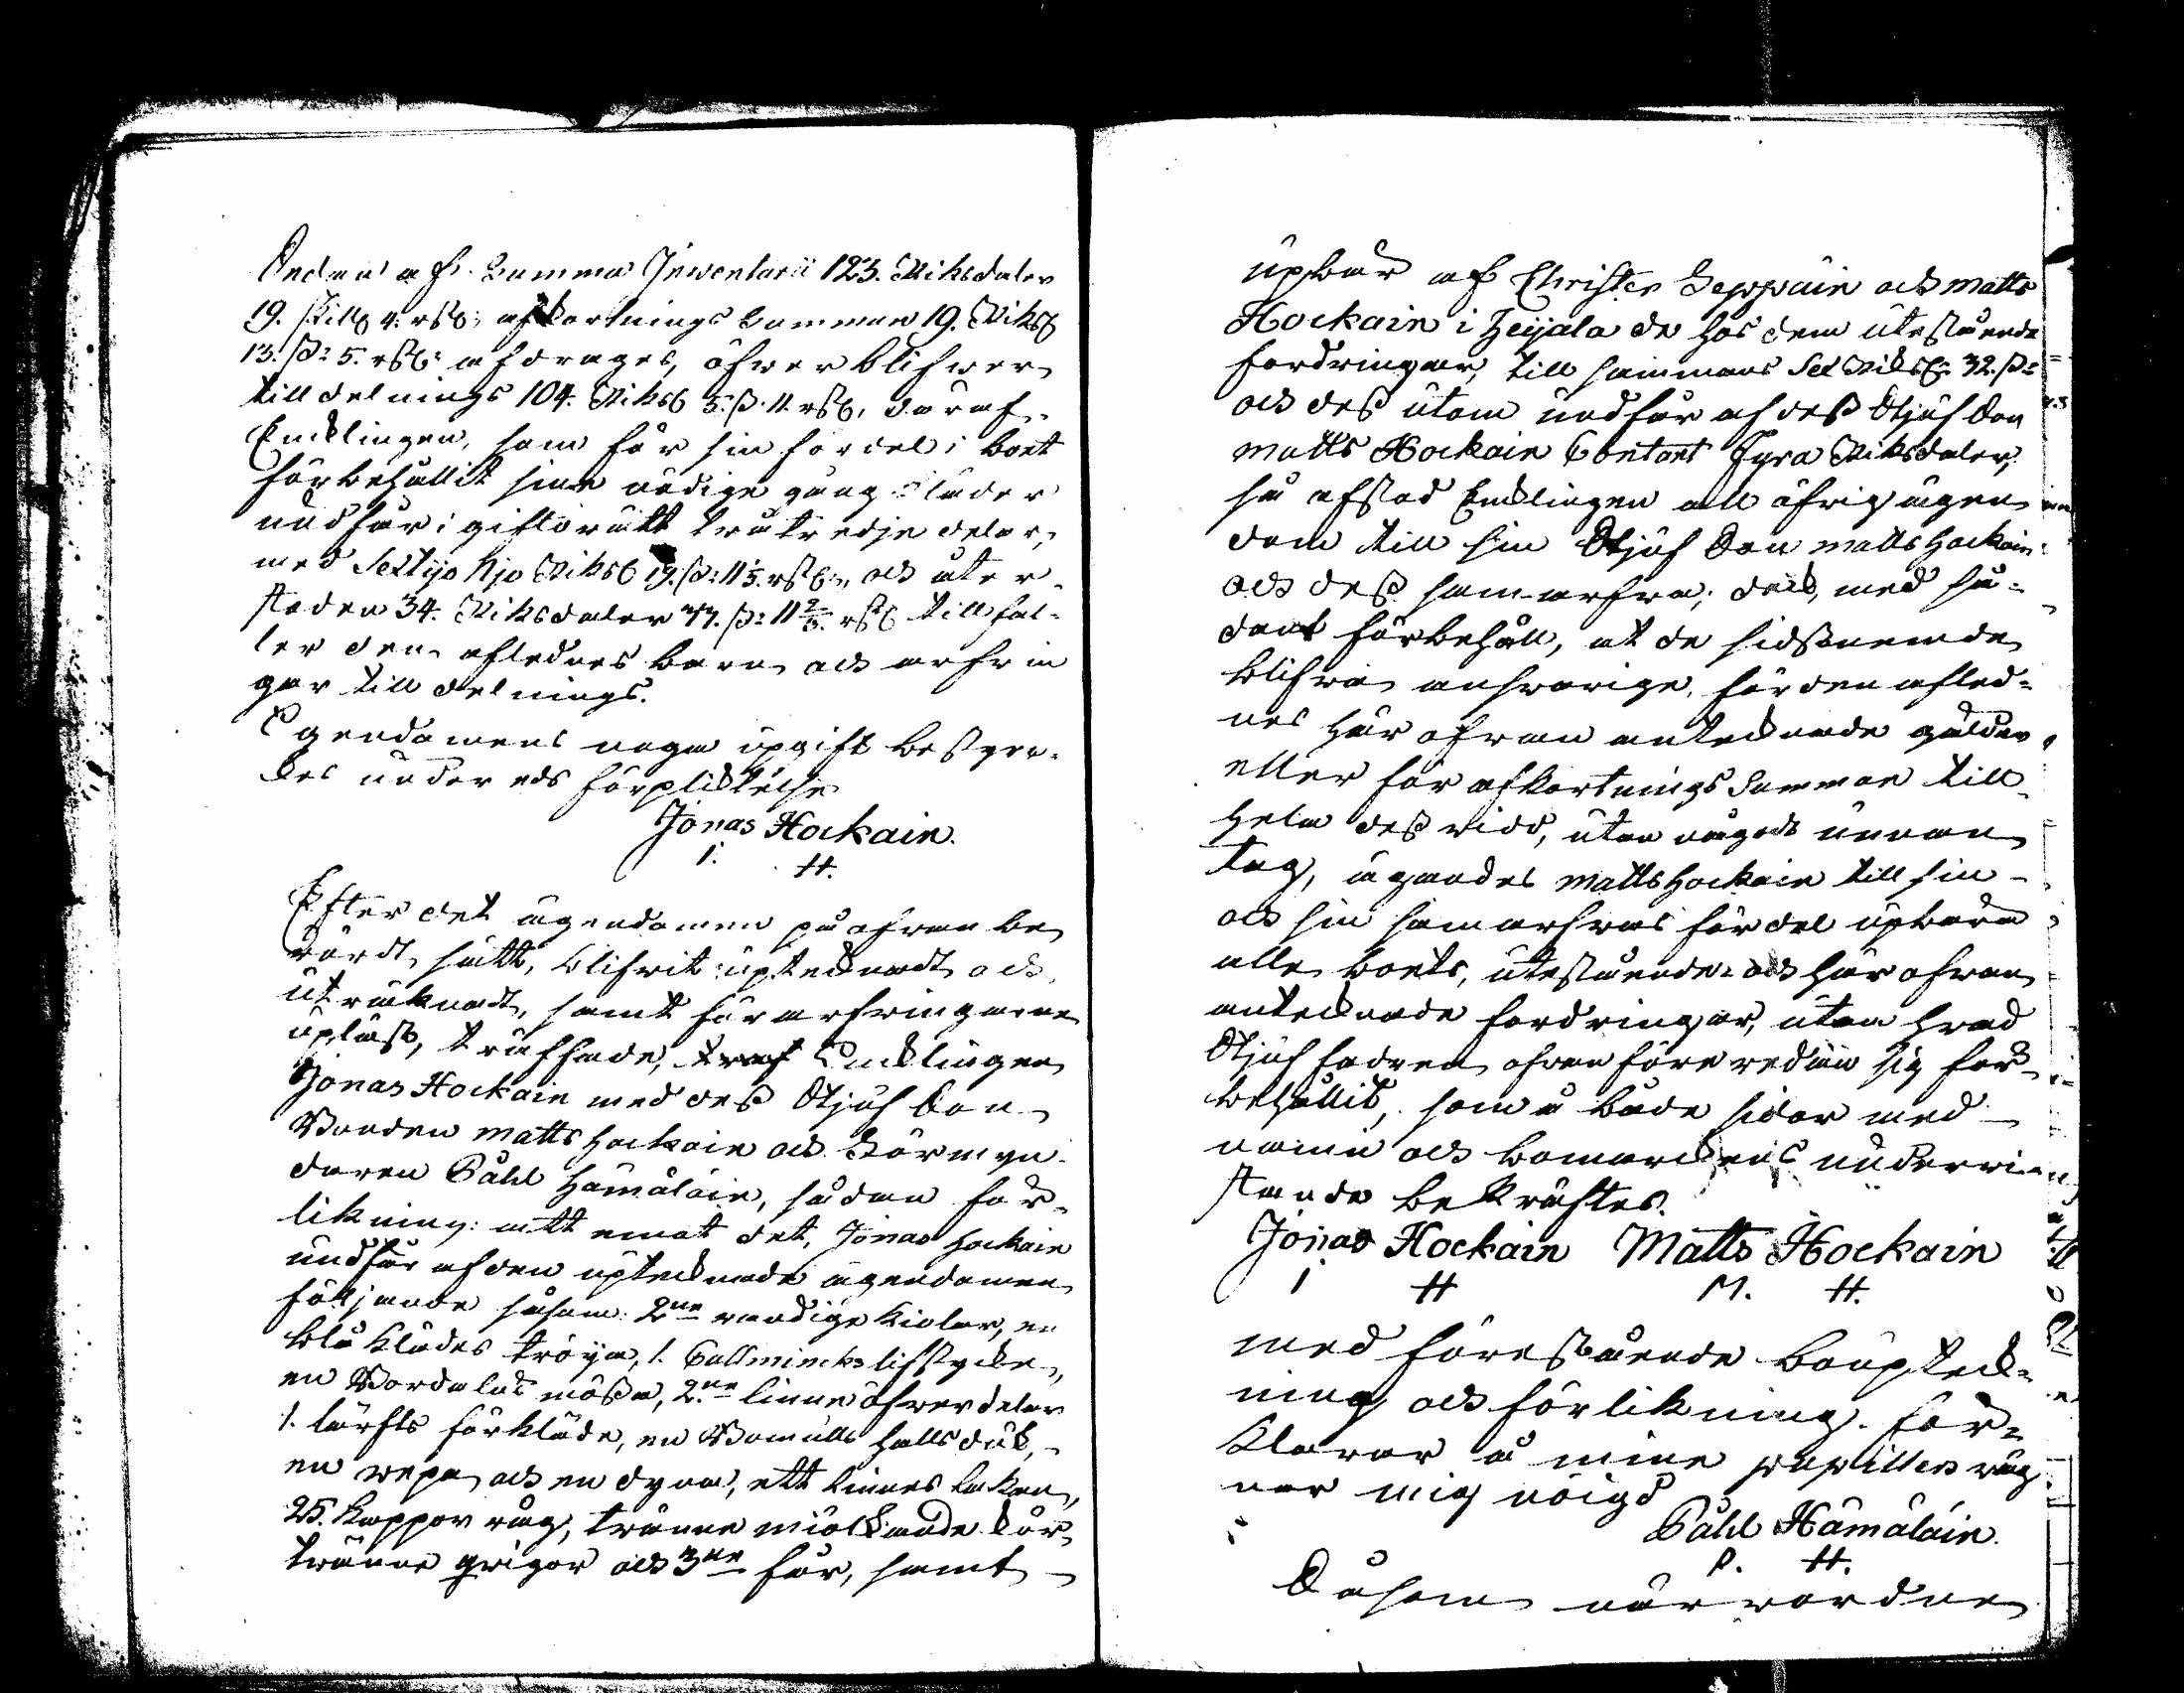 Sedan af Summa Inventarii 123. Riksdaler
19. skill 4. rst: afkortnings Summan 19. Riksd
13. sk: 5. rst: afdrages, öfwer blifwer
till delnings 104. Riksd 5. sk. 11. rst, däraf
Encklingen, som för sin fördel i boet
förbehållit sine nödige gång kläder
undfår i giftorätt twåtredje delar,
med Sextijo Nijo Riksd 19. sk: 11 1/3. rst: och åter-
stoden 34. Riksdaler sk: 11 2/3. rst tillfal-
ler den aflednes barn och arfwin
gar till delnings.
Egendomens noga upgift bestyr-
kes under eds förplicktelse
Jonas Hockain.
I. H.
Efter det ägendomen på ofwan be
rördt sätt, blifwit upteknadt och
uträknadt, samt för arfwingarne
upläst, träffade, Encklingen
Jonas Hockain med dess Stjuf Son
Bonden Matts Hockain och Förmyn-
daren Påhl Hämäläin, sådan för-
likning: att emot det, Jonas Hockain
undfår af den upteknade ägendomen
följande såsom: 2ne wardige Kiolar, en
blå Klädes tröija, 1. Callmincks lifstycke,
en mössa, 2ne linne öfwerdelar
1. lärfts förkläde, en Bomulls halsduk,
en wepa och en dyna, ett linnes lakan,
25. Kappor råg, tränne miölkande kor,
tränne qwigor och 3ne får, samt
upbär af Christer Seppäin och Matts
Hockain i Heijala de hos dem utestående
fordringar, till sammans Sex Riksd: 32. sk:
och dess utom undfår af dess Stjuf Son
Matts Hockain Contant Fyra Riksdaler,
så afstod Encklingen all öfrig ägen
dom till sin Stjuf Son Matts Hockain
och dess samarfwa; dock, med så-
dant förbehåll, at de sidstnemde
blifwa answarige, för den afled-
nes här ofwan antecknade gälder
eller för afkortnings Summan till
hela dess widd, utan något undan
tag, ägandes Matts Hockain till sin
och sin samarfwas fördel upbära
alle boets, utestående och här ofwan
antecknade fordringar, utan hwad
Stjuf fadren ofwan före redan sig för-
behållit, som å både sidor med
namn och bomärckens underwin
stande bekräftes.
Jonas Hockain Matts Hockain
I H M. H.
Med förestående bouptek-
ning och förlikning. för-
klarar å mine pupillers wäg
nar mig nöigd
Påhl Hämäläin.
P. H.
Såsom närwardne